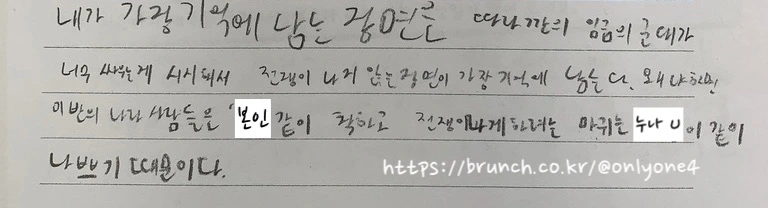 내가 가장 기억에 남는 장면은 따라깐의 임금의 군대가
너무 싸우는게 시시해서 전쟁이 나지 않는 장면이 가장 기억에 남는다. 왜냐하면
이반의 나라 사람들은 '본인 같이 착하고 전쟁이나게하려는 마귀는 누나 U이 같이
나쁘기 때문이다.
https://brunch.co.kr/@onlyone4